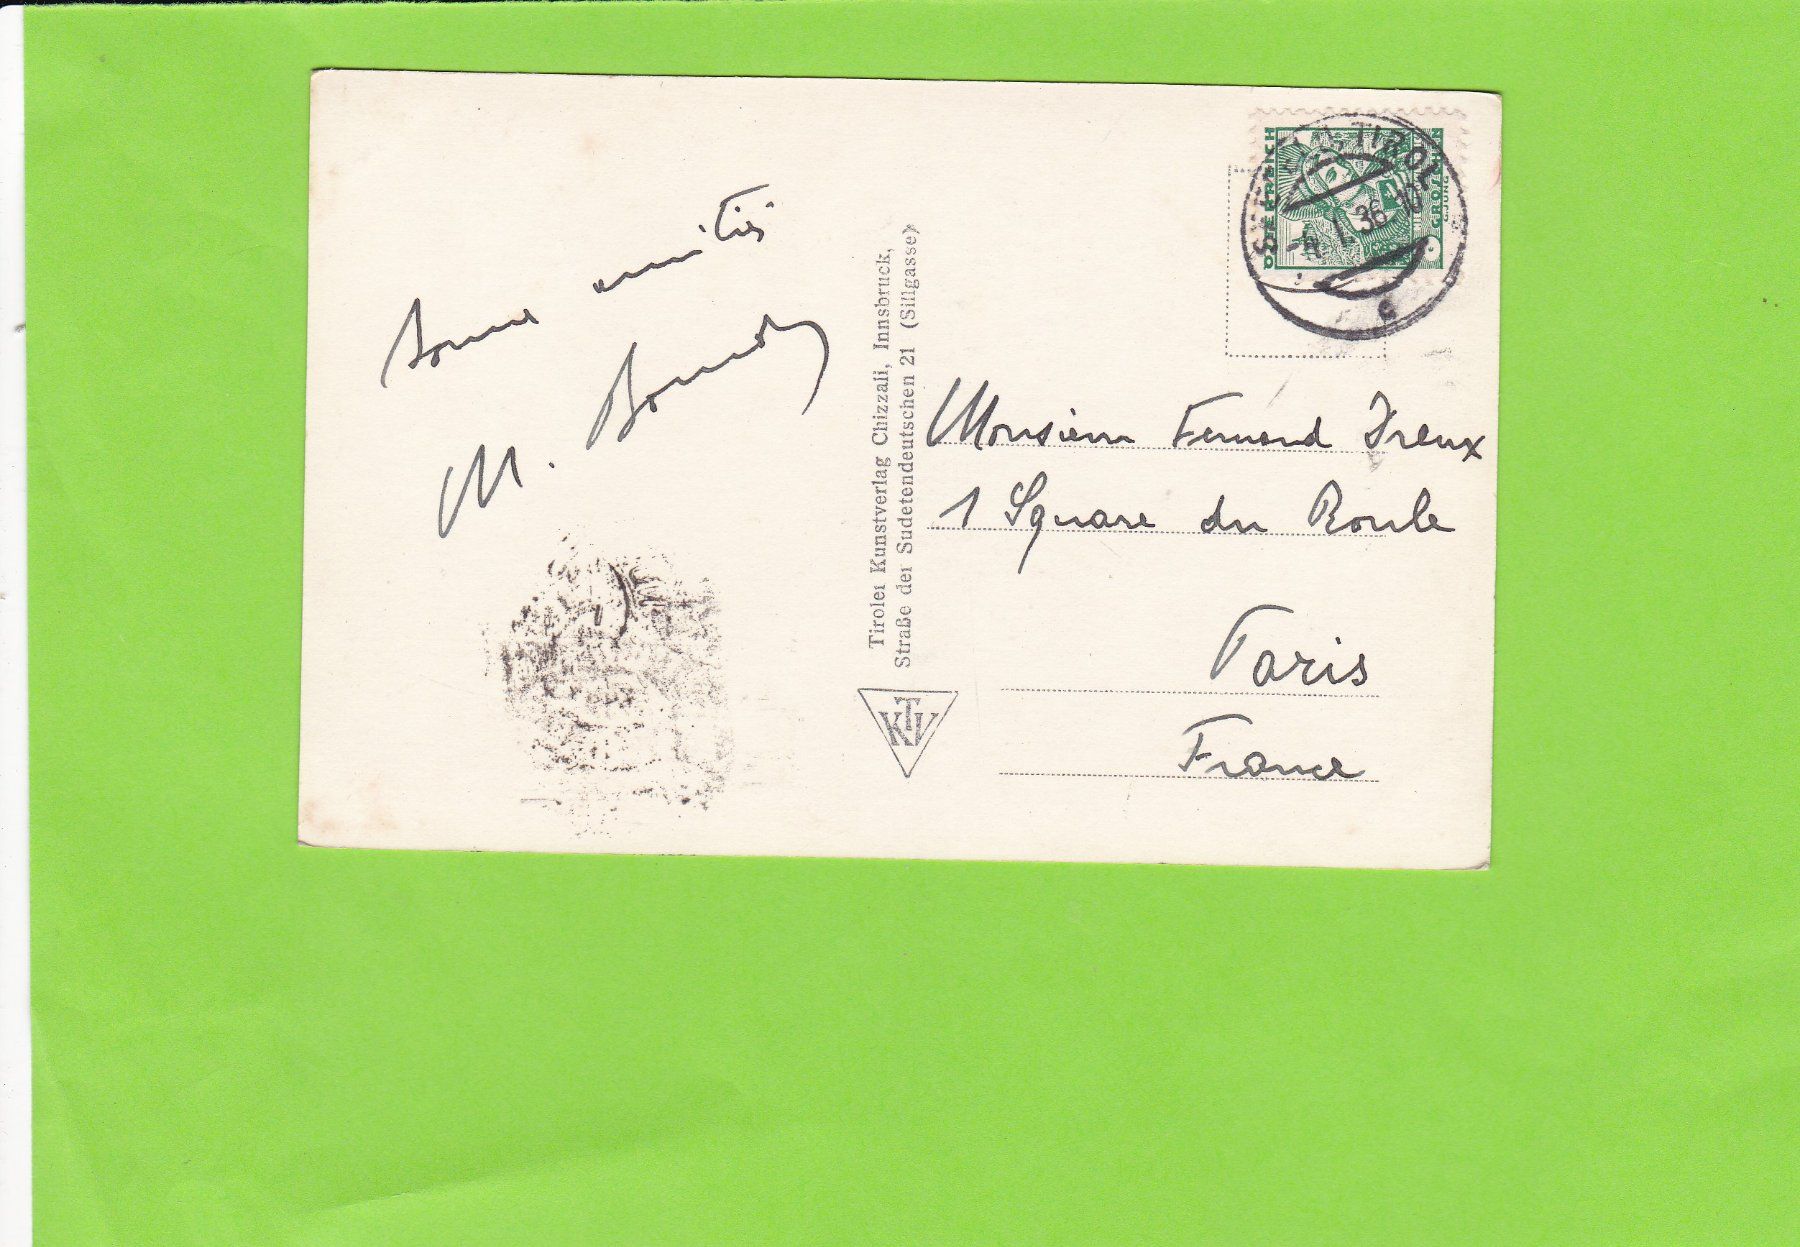 Bonnes amitiés
M.
Tiroler Kunstverlag Chizzali, Innsbruck,
Straße der Sudetendeutschen 21 (Sillgasse)
KTV
ÖSTERREICH
TIROL
4. I. 36 10
G.JUNG
Monsieur Fernand Dreux
1 Square du Roule
Paris
France